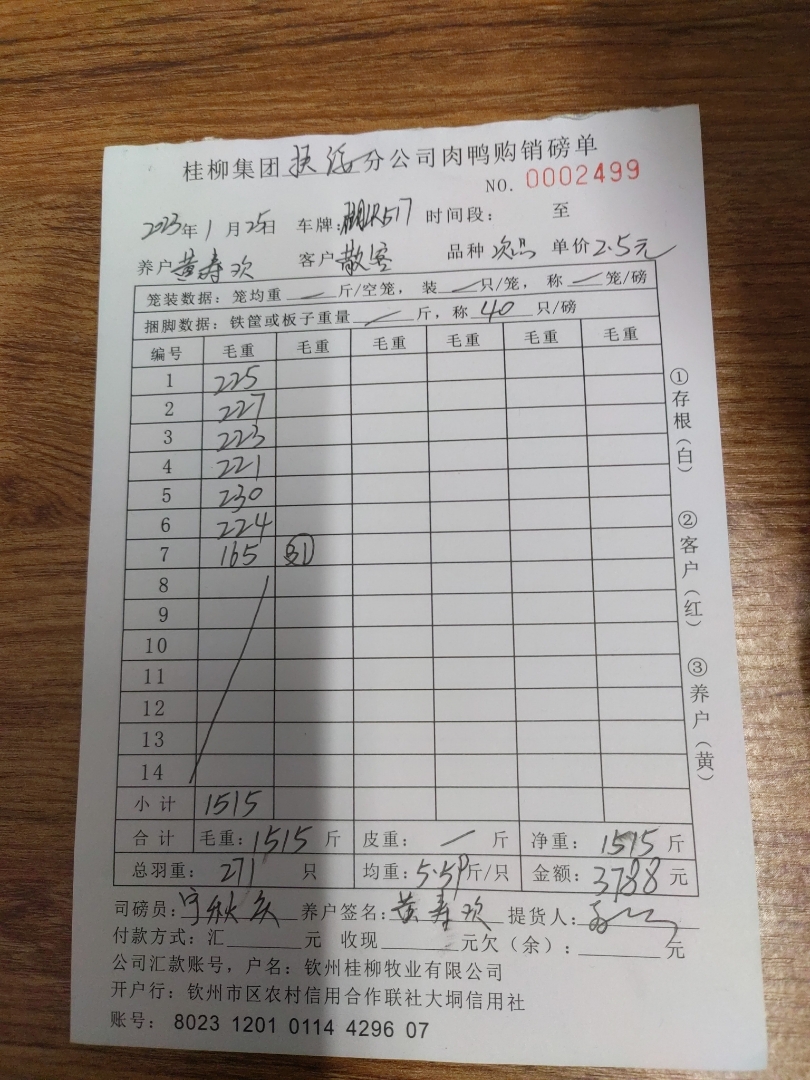 桂柳集团 分公司肉鸭购销磅单
NO. 0002499
2023年1月25日 车牌: 时间段: 至
养户 黄寿欢 客户 散客 品种 次品 单价 2.5元
笼装数据: 笼均重 — 斤/空笼, 装 — 只/笼, 称 — 笼/磅
捆脚数据: 铁筐或板子重量 — 斤, 称 40 只/磅
编号 毛重 毛重 毛重 毛重 毛重 毛重
1 225
2 227
3 223
4 221
5 230
6 224
7 165 31
8
9
10
11
12
13
14
小计 1515
合计 毛重: 1515 斤 皮重: — 斤 净重: 1515 斤
总羽重: 271 只 均重: 5.59 斤/只 金额: 3788 元
司磅员: 宁秋 养户签名: 黄寿欢 提货人:
付款方式: 汇 元 收现 元欠(余): 元
公司汇款账号, 户名: 钦州桂柳牧业有限公司
开户行: 钦州市区农村信用合作联社大垌信用社
账号: 8023 1201 0114 4296 07
①存根(白)
②客户(红)
③养户(黄)